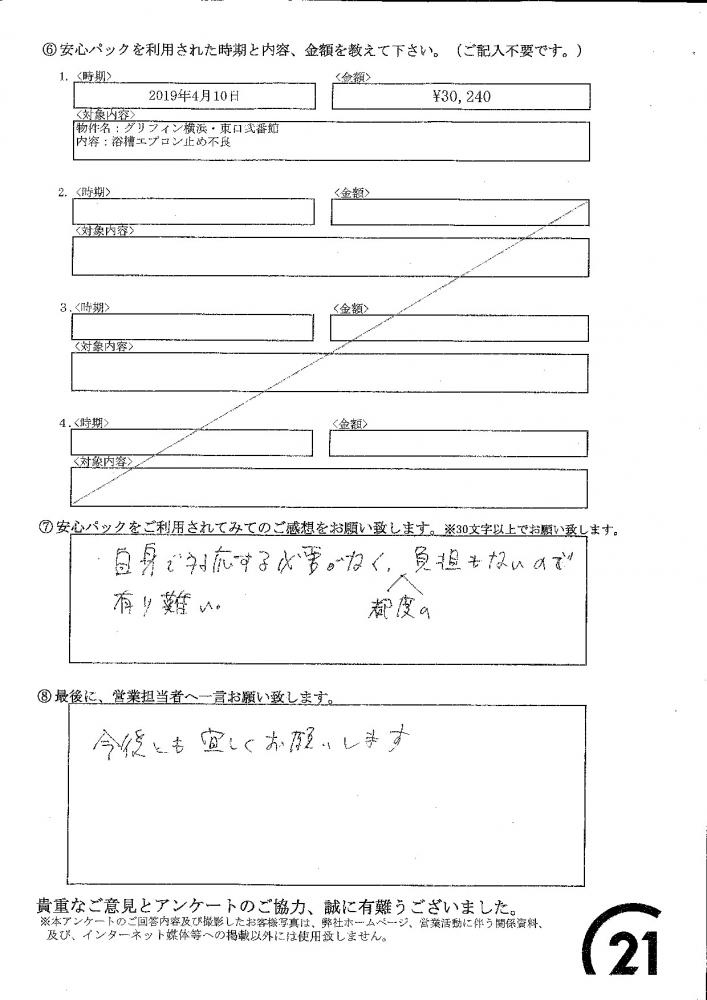 ⑥安心パックを利用された時期と内容、金額を教えて下さい。（ご記入不要です。）
1.〈時期〉 〈金額〉
2019年4月10日 ¥30,240
〈対象内容〉
物件名：グリフィン横浜・東口弐番館
内容：浴槽エプロン止め不良
2.〈時期〉 〈金額〉
〈対象内容〉
3.〈時期〉 〈金額〉
〈対象内容〉
4.〈時期〉 〈金額〉
〈対象内容〉
⑦安心パックをご利用されてみてのご感想をお願い致します。※30文字以上でお願い致します。
自身で対応する必要がなく、都度の負担もないので
有り難い。
⑧最後に、営業担当者へ一言お願い致します。
今後とも宜しくお願いします
貴重なご意見とアンケートのご協力、誠に有難うございました。
※本アンケートのご回答内容及び撮影したお客様写真は、弊社ホームページ、営業活動に伴う関係資料、
及び、インターネット媒体等への掲載以外には使用致しません。
21